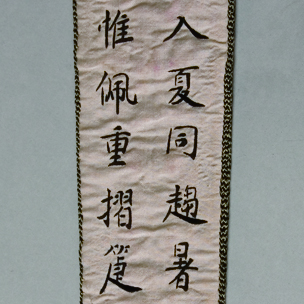 入夏同趨暑
惟佩重摺箑